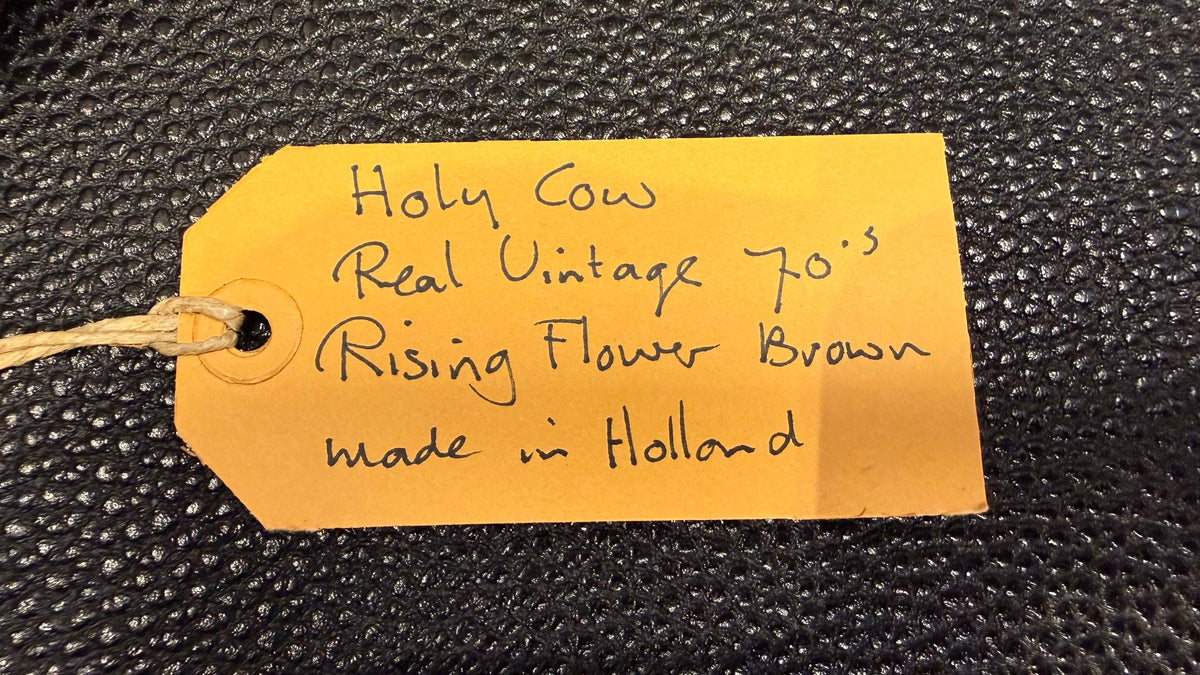 Holy Cow
Real Vintage 70's
Rising Flower Brown
made in Holland